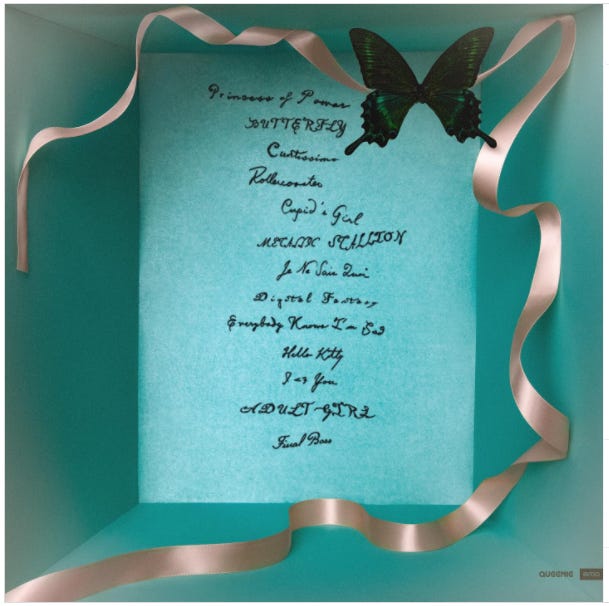 Princess of Power
BUTTERFLY
Cuntissimo
Rollercoaster
Cupid's Girl
METALLIC STALLION
Je Ne Sais Quoi
Digital Fantasy
Everybody Knows I'm Sad
Hello Kitty
I <3 You
ADULT GIRL
Final Boss
QUEENIE BMG